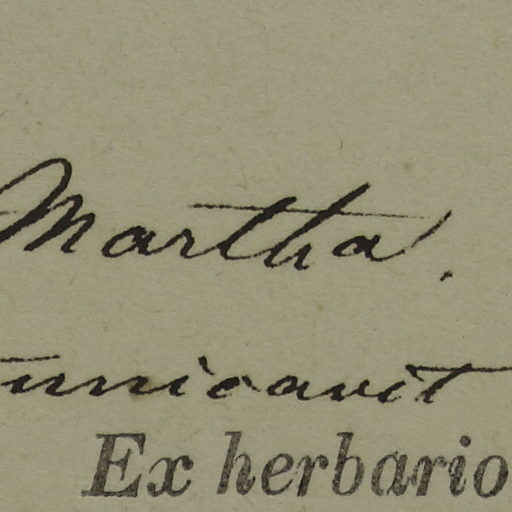 Martha.
unicavit
Ex herbario